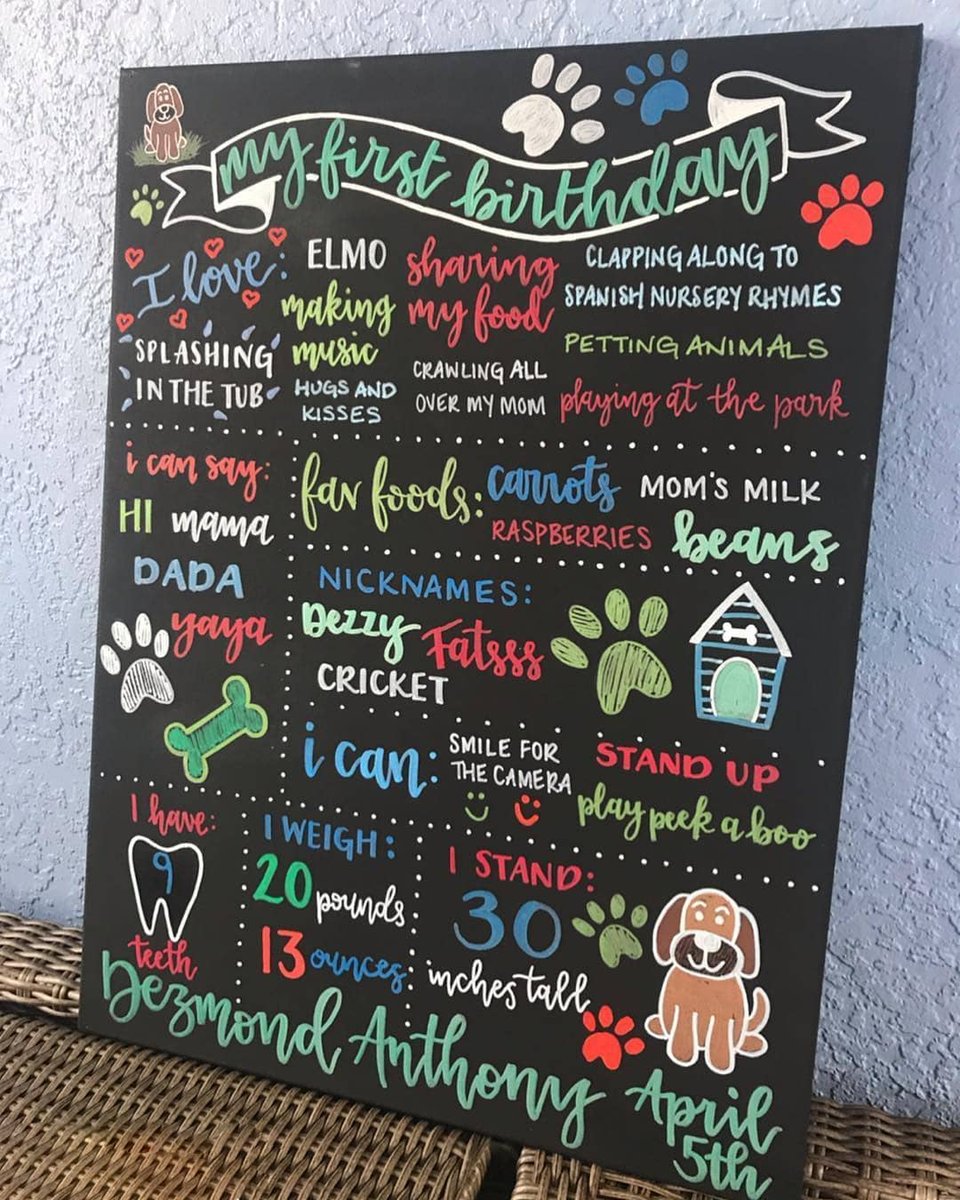 my first birthday
I love:
ELMO
making
music
sharing
my food
CLAPPING ALONG TO
SPANISH NURSERY RHYMES
PETTING ANIMALS
SPLASHING
IN THE TUB
HUGS AND
KISSES
CRAWLING ALL
OVER MY MOM
playing at the park
i can say:
HI mama
DADA
yaya
fav foods: carrots MOM'S MILK
RASPBERRIES beans
NICKNAMES:
Dezzy Fatsss
CRICKET
i can:
SMILE FOR
THE CAMERA
STAND UP
play peek a boo
I have:
9
teeth
I WEIGH:
20 pounds
13 ounces
I STAND:
30
inches tall
Dezmond Anthony
April
5th